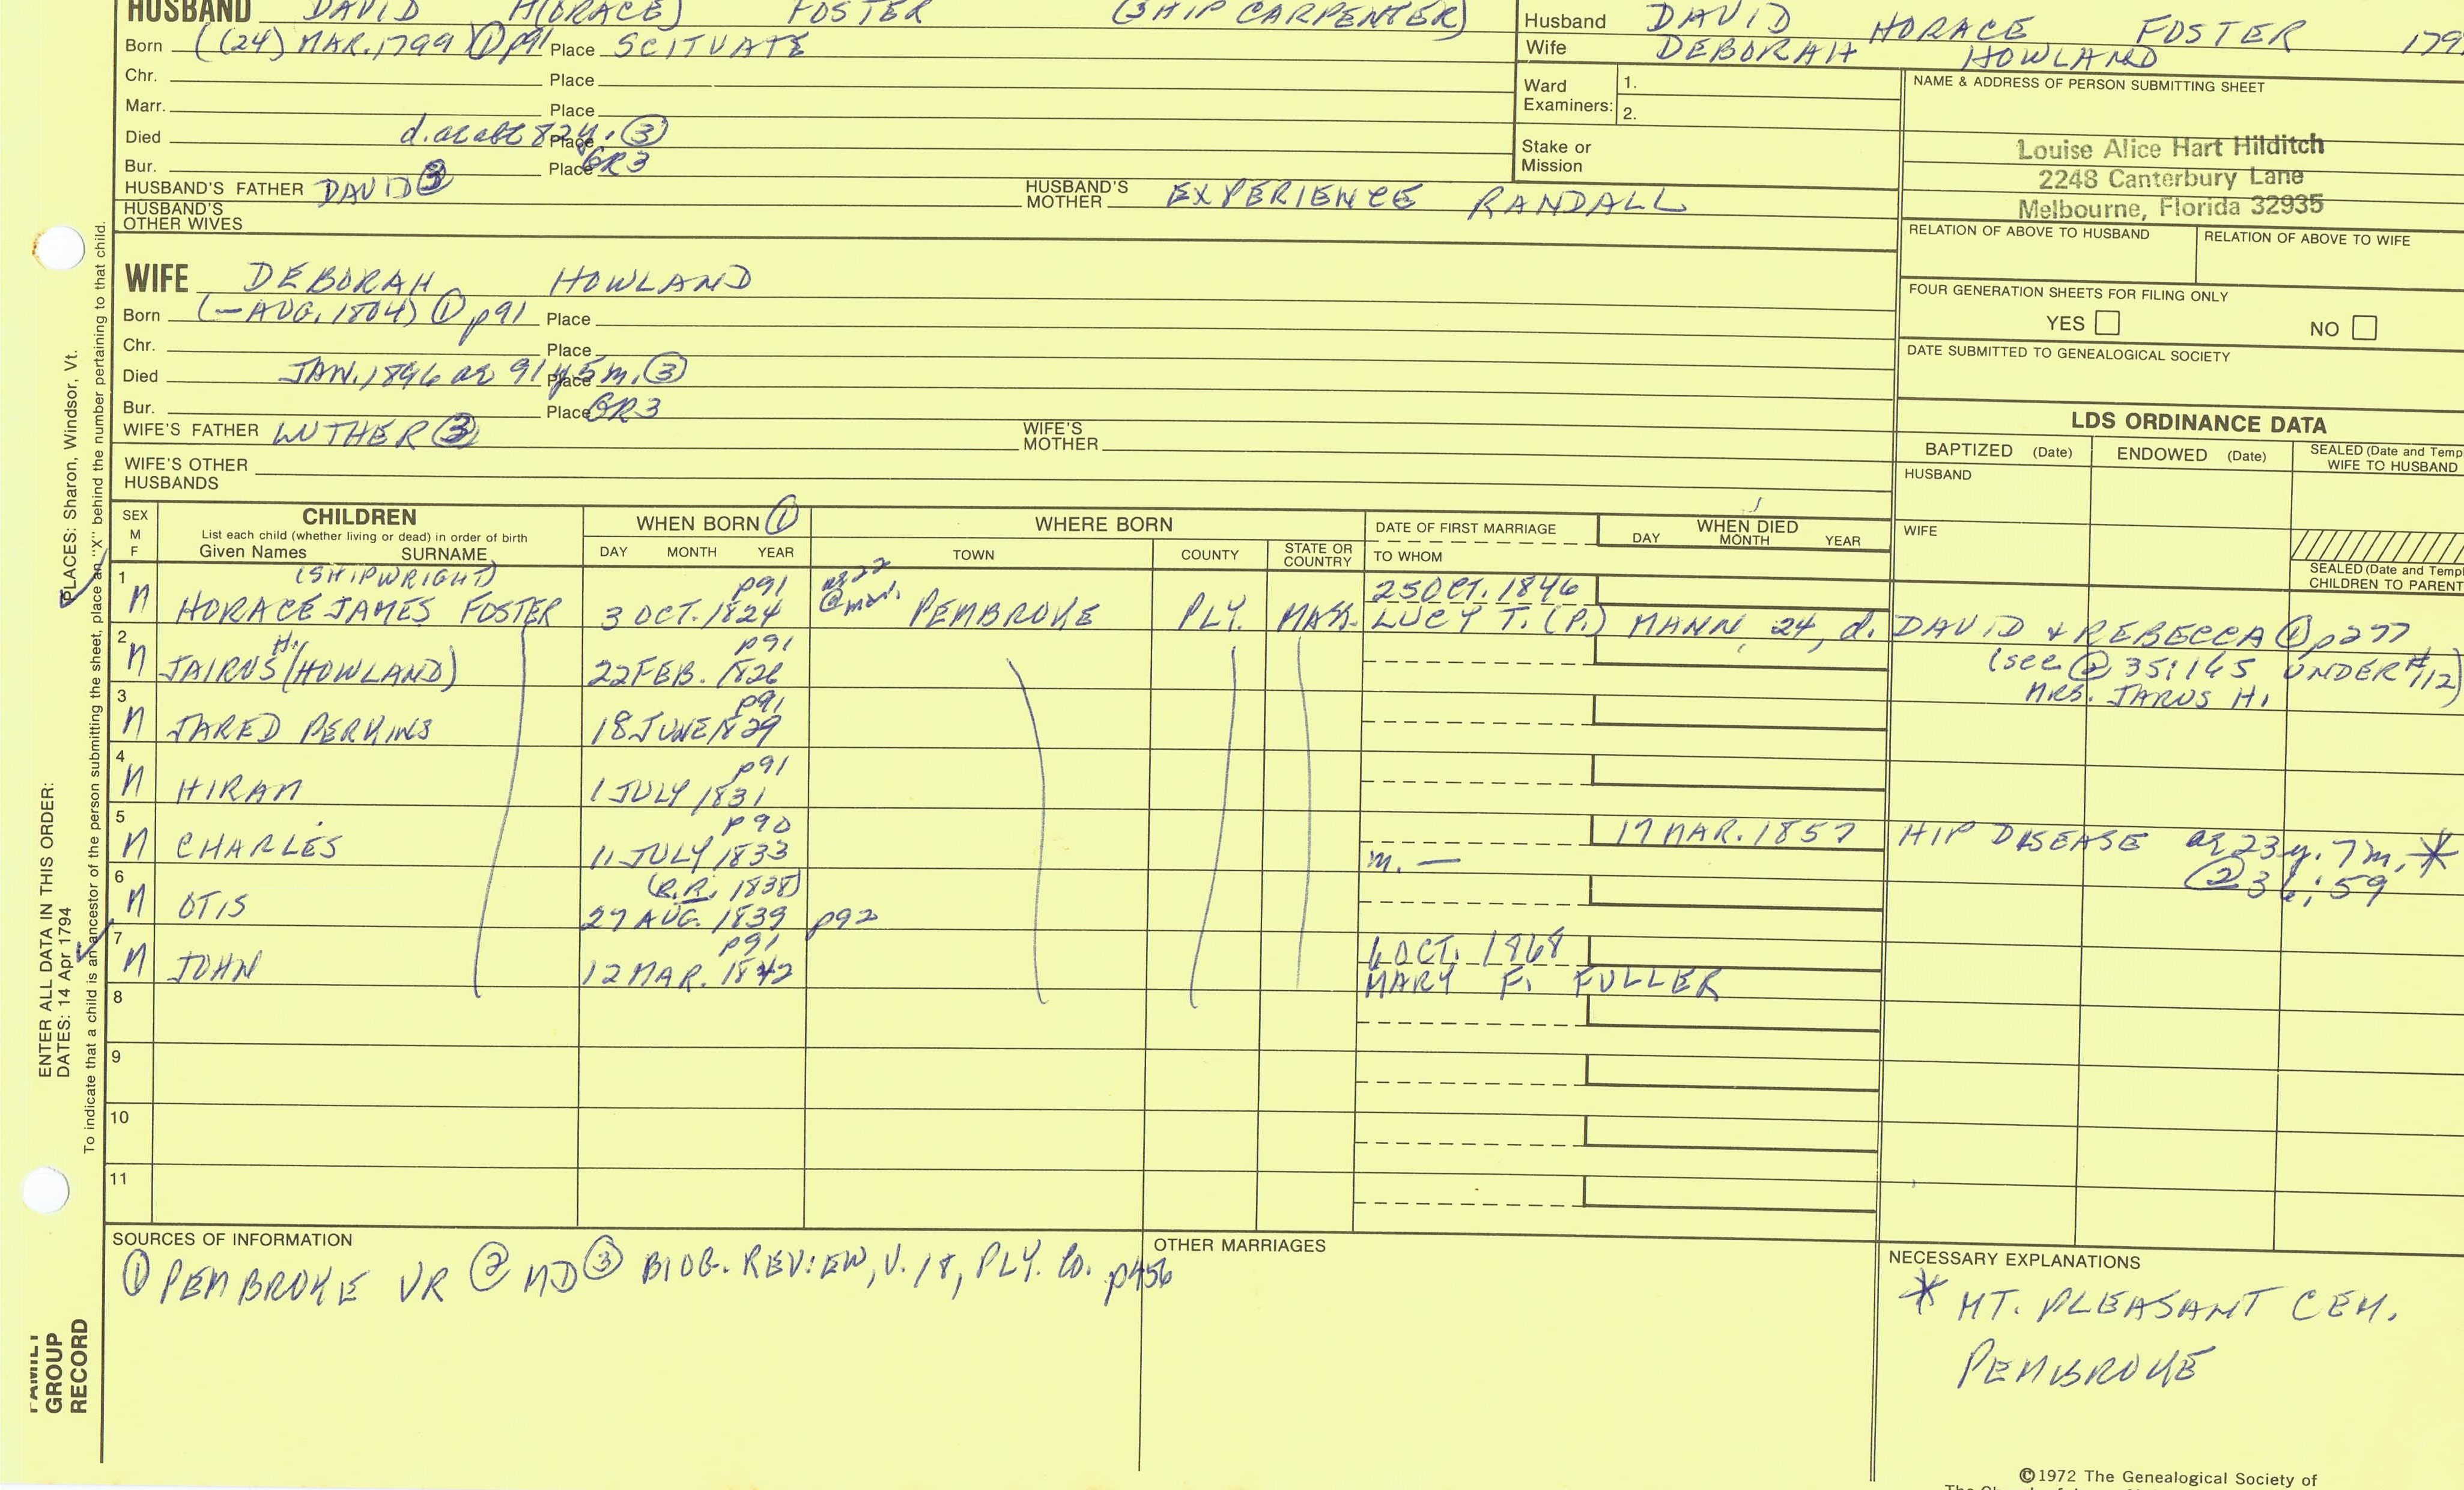 HUSBAND DAVID H(ORACE) FOSTER (SHIP CARPENTER)
Born ((24) MAR. 1799) ① p91 Place SCITUATE
Chr. Place
Marr. Place
Died d. ae abt 82y. ③ Place
Bur. Place GR3
HUSBAND'S FATHER DAVID ③ HUSBAND'S MOTHER EXPERIENCE RANDALL
HUSBAND'S OTHER WIVES
Husband DAVID HORACE FOSTER 179
Wife DEBORAH HOWLAND
Ward Examiners: 1.
2.
Stake or Mission
NAME & ADDRESS OF PERSON SUBMITTING SHEET
Louise Alice Hart Hilditch
2248 Canterbury Lane
Melbourne, Florida 32935
RELATION OF ABOVE TO HUSBAND RELATION OF ABOVE TO WIFE
FOUR GENERATION SHEETS FOR FILING ONLY
YES NO
DATE SUBMITTED TO GENEALOGICAL SOCIETY
WIFE DEBORAH HOWLAND
Born (—AUG. 1804) ① p91 Place
Chr. Place
Died JAN. 1896 ae 91y 5m. ③ Place
Bur. Place GR3
WIFE'S FATHER LUTHER ③ WIFE'S MOTHER
WIFE'S OTHER HUSBANDS
LDS ORDINANCE DATA
BAPTIZED (Date) ENDOWED (Date) SEALED (Date and Temp
WIFE TO HUSBAND
HUSBAND
WIFE
SEALED (Date and Templ
CHILDREN TO PARENT
SEX M F CHILDREN
List each child (whether living or dead) in order of birth
Given Names SURNAME
WHEN BORN ①
DAY MONTH YEAR
WHERE BORN
TOWN COUNTY STATE OR COUNTRY
DATE OF FIRST MARRIAGE
TO WHOM
WHEN DIED
DAY MONTH YEAR
1 (SHIPWRIGHT) p91 25 OCT. 1846
M HORACE JAMES FOSTER 3 OCT. 1824 PEMBROKE PLY. MASS. LUCY T. (P.) MANN, 24, d. DAVID & REBECCA ① p277
2 H. p91 (see ② 35:165 UNDER #112)
M JAIRUS (HOWLAND) 22 FEB. 1826 MRS. JARUS H.
3 p91
M JARED PERKINS 18 JUNE 1829
4 p91
M HIRAM 1 JULY 1831
5 p90
M CHARLES 11 JULY 1833 m. — 17 MAR. 1857 HIP DISEASE ae 23y. 7m. *
② 36:59
6 (C.R. 1838)
M OTIS 27 AUG. 1839 p92
7 p91 6 OCT. 1868
M JOHN 12 MAR. 1842 MARY F. FULLER
8
9
10
11
SOURCES OF INFORMATION
① PEMBROKE VR ② MD ③ BIOG. REVIEW, V. 18, PLY. Co. p456
OTHER MARRIAGES
NECESSARY EXPLANATIONS
* MT. PLEASANT CEM.
PEMBROKE
©1972 The Genealogical Society of
ENTER ALL DATA IN THIS ORDER:
DATES: 14 Apr 1794 PLACES: Sharon, Windsor, Vt.
To indicate that a child is an ancestor of the person submitting the sheet, place an "X" behind the number pertaining to that child.
FAMILY
GROUP
RECORD